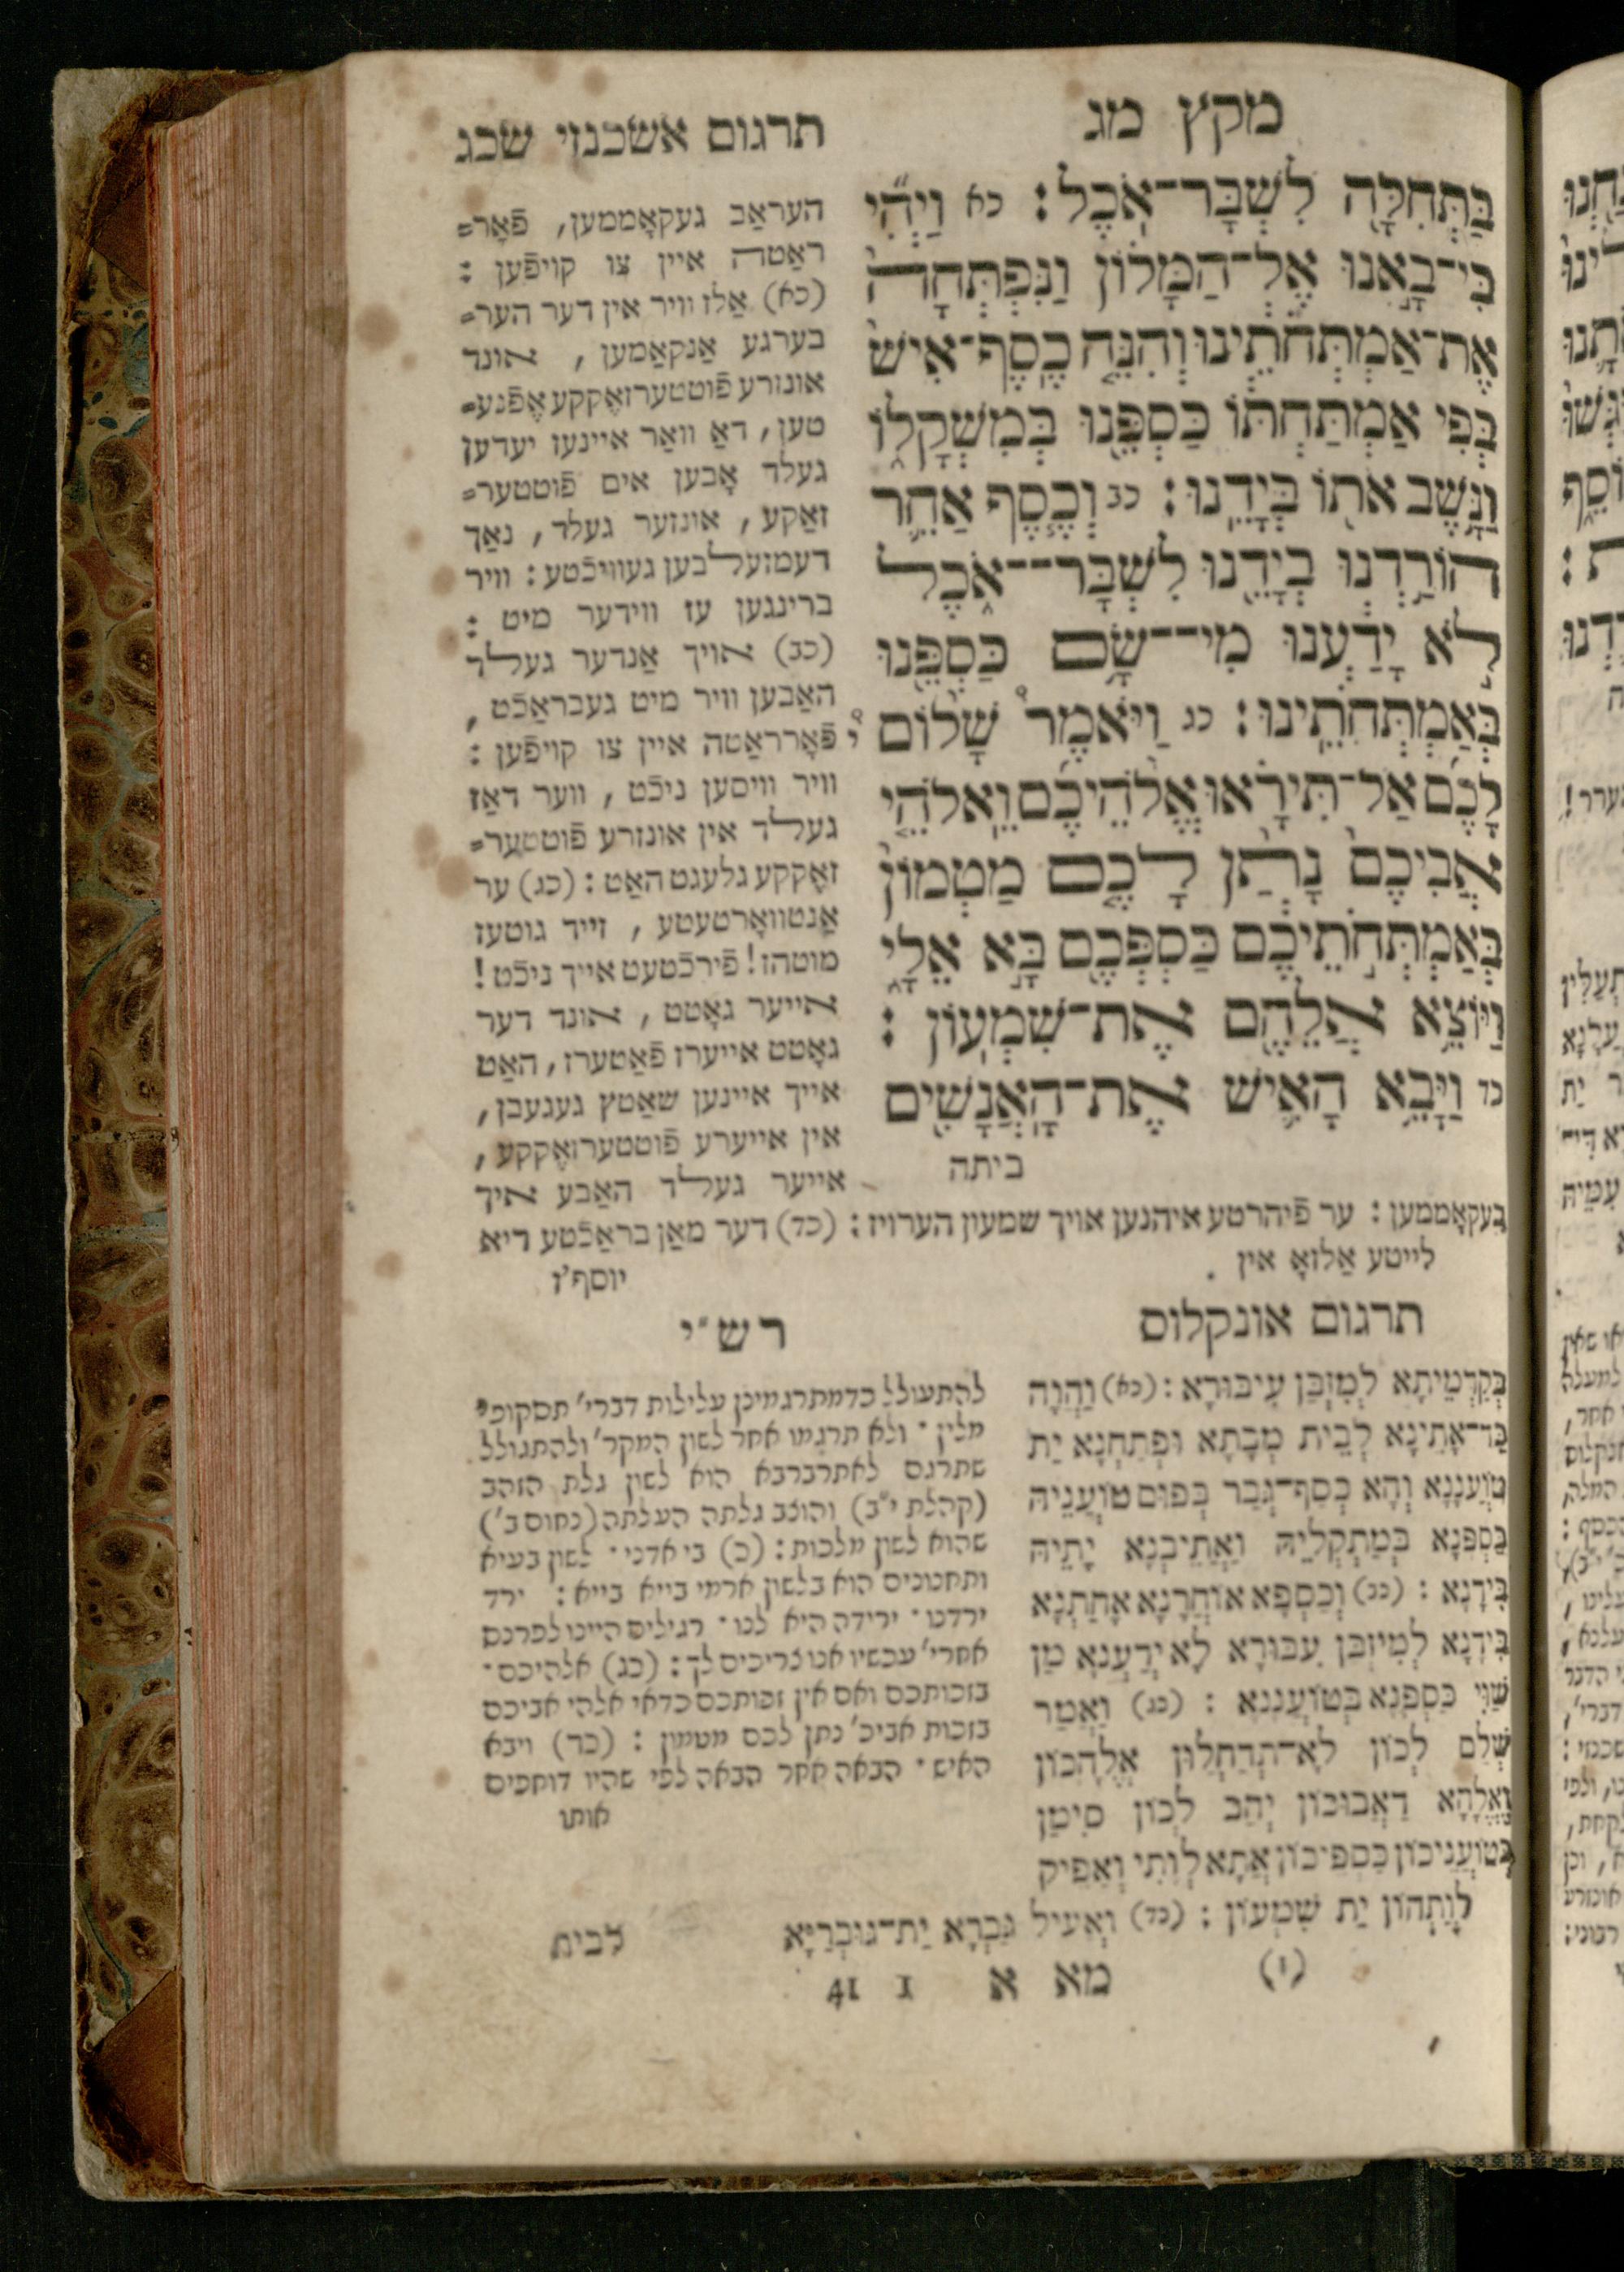 מקץ מג
בַּתְּחִלָּה לִשְׁבָּר־אֹכֶל : כא וַיְהִי
כִּי־בָאנוּ אֶל־הַמָּלוֹן וַנִּפְתְּחָה
אֶת־אַמְתְּחֹתֵינוּ וְהִנֵּה כֶסֶף־אִישׁ
בְּפִי אַמְתַּחְתּוֹ כַּסְפֵּנוּ בְּמִשְׁקָלוֹ
וַנָּשֶׁב אֹתוֹ בְּיָדֵנוּ : כב וְכֶסֶף אַחֵר
הוֹרַדְנוּ בְיָדֵנוּ לִשְׁבָּר־־אֹכֶל
לֹא יָדַעְנוּ מִי־־שָׂם כַּסְפֵּנוּ
בְּאַמְתְּחֹתֵינוּ : כג וַיֹּאמֶר שָׁלוֹם
לָכֶם אַל־תִּירָאוּ אֱלֹהֵיכֶם וֵאלֹהֵי
אֲבִיכֶם נָתַן לָכֶם מַטְמוֹן
בְּאַמְתְּחֹתֵיכֶם כַּסְפְּכֶם בָּא אֵלָי
וַיּוֹצֵא אֲלֵהֶם אֶת־שִׁמְעוֹן :
כד וַיָּבֵא הָאִישׁ אֶת־הָאֲנָשִׁים
ביתה
תרגום אשכנזי שכג
העראַב געקאָממען, פֿאָר=
ראַטה איין צו קויפֿען :
(כא) אַלז וויר אין דער הער=
בערגע אַנקאַמען , אונד
אונזרע פֿוטטערזאֶקקע אֶפֿנע=
טען, דאַ וואַר איינעז יעדען
געלד אָבען אים פֿוטטער=
זאַקע, אונזער געלד, נאַך
דעמזעלבען געוויכֿטע : וויר
ברינגען עז ווידער מיט :
(כב) אויך אַנדער געלד
האַבען וויר מיט געבראַכֿט ,
פֿאָרראַטה איין צו קויפֿען :
וויר וויסען ניכֿט , ווער דאַז
געלד אין אונזרע פֿוטטער=
זאֶקקע גלעגט האַט : (כג) ער
אַנטוואָרטעטע , זייד גוטעז
מוטהז! פֿירכֿטעט אייך ניכֿט !
אייער גאָטט , אונד דער
גאָטט אייערז פֿאַטערז, האַט
אייך איינען שאַטץ געגעבן,
אין אייערע פֿוטטערזאֶקקע,
אייער געלד האַבע איך
בעקאָממען : ער פֿיהרטע איהנען אויך שמעון הערויז : (כד) דער מאַן בראַכֿטע דיא
לייטע אַלזאָ אין
יוסף'ז
תרגום אונקלוס
בְּקַדְמֵיתָא לְמִזְבַּן עִיבּוּרָא : (כא) וַהֲוָה
כַּד־אָתֵינָא לְבֵית מְבָתָא וּפְתַחְנָא יַת
טוֹעֲנָנָא וְהָא כְסַף־גְּבַר בְּפוּם טוֹעֲנֵיהּ
כַּסְפָּנָא בְּמַתְקְלֵיהּ וַאֲתֵיבְנָא יָתֵיהּ
בִּידָנָא : (כב) וְכַסְפָּא אוֹחֲרָנָא אָחֵתְנָא
בִידָנָא לְמִיזְבַּן עִבּוּרָא לָא יְדַעְנָא מַן
שַׁוִּי כַּסְפָּנָא בְּטוֹעֲנָנָא : (כג) וַאֲמַר
שְׁלָם לְכוֹן לָא־תִדְחֲלוּן אֱלָהֲכוֹן
וֶאֱלָהָא דַאֲבוּכוֹן יְהַב לְכוֹן סִימַן
בְּטוֹעֲנֵיכוֹן כַּסְפֵּיכוֹן אֲתָא לְוָתִי וְאַפֵּיק
לְוָתְהוֹן יַת שִׁמְעוֹן : (כד) וְאָעֵיל גַּבְרָא יַת־גּוּבְרַיָּא
לבית
רש"י
להתעולל כדמתרגמינן עלילות דברי' תסקופי
מלין ־ ולא תרגמו אחר לשון המקר' ולהתגולל
שתרגם לאתרברבא הוא לשון גלת הזהב
(קהלת י"ב) והוצב גלתה העלתה (נחום ב')
שהוא לשון מלכות : (כ) בי אדני ־ לשון בעיא
ותחנונים הוא בלשון ארמי בייא בייא : ירד
ירדנו ־ ירידה היא לנו ־ רגילים היינו לפרנס
אחרי' עכשיו אנו צריכים לך : (כג) אלהיכם ־
בזכותכם ואם אין זכותכם כדאי אלהי אביכם
בזכות אביכ' נתן לכם מטמון : (כד) ויבא
האיש ־ הבאה אחר הבאה לפי שהיו דוחפים
אותו
(1) מא א 1 41